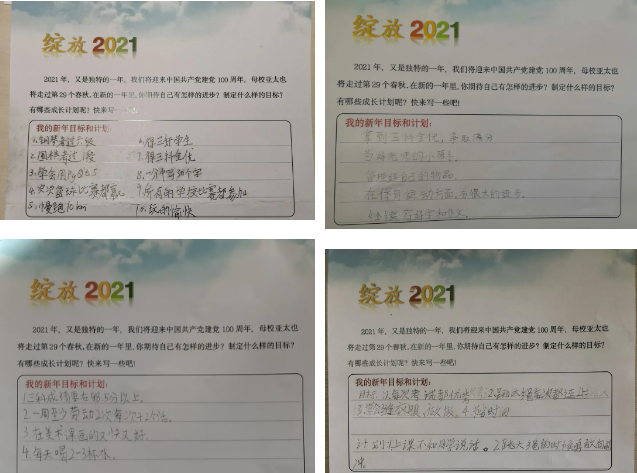 绽放2021
2021年，又是独特的一年，我们将迎来中国共产党建党100周年，母校亚太也
将走过第29个春秋,在新的一年里,你期待自己有怎样的进步？制定什么样的目标？
有哪些成长计划呢？快来写一些吧!
我的新年目标和计划:
1.钢琴考过六级 6.得三好学生
2.围棋考过1段 7.得三科全优
8.一分钟写30个字
5.慢跑10km 10.玩的愉快
绽放2021
2021年，又是独特的一年，我们将迎来中国共产党建党100周年，母校亚太也
将走过第29个春秋,在新的一年里,你期待自己有怎样的进步？制定什么样的目标？
有哪些成长计划呢？快来写一些吧!
我的新年目标和计划:
拿到三科全优，争取满分
当好老师的小
管理好自己的物品
在体育运动方面,有很大的进步
绽放2021
2021年，又是独特的一年，我们将迎来中国共产党建党100周年，母校亚太也
将走过第29个春秋,在新的一年里,你期待自己有怎样的进步？制定什么样的目标？
有哪些成长计划呢？快来写一些吧!
我的新年目标和计划:
1.三科成绩要在95分以上.
2.一周至少劳动2次每次
3.在美术课画的又快又好.
4.每天喝2-3杯水.
绽放2021
2021年，又是独特的一年，我们将迎来中国共产党建党100周年，母校亚太也
将走过第29个春秋,在新的一年里,你期待自己有怎样的进步？制定什么样的目标？
有哪些成长计划呢？快来写一些吧!
我的新年目标和计划: